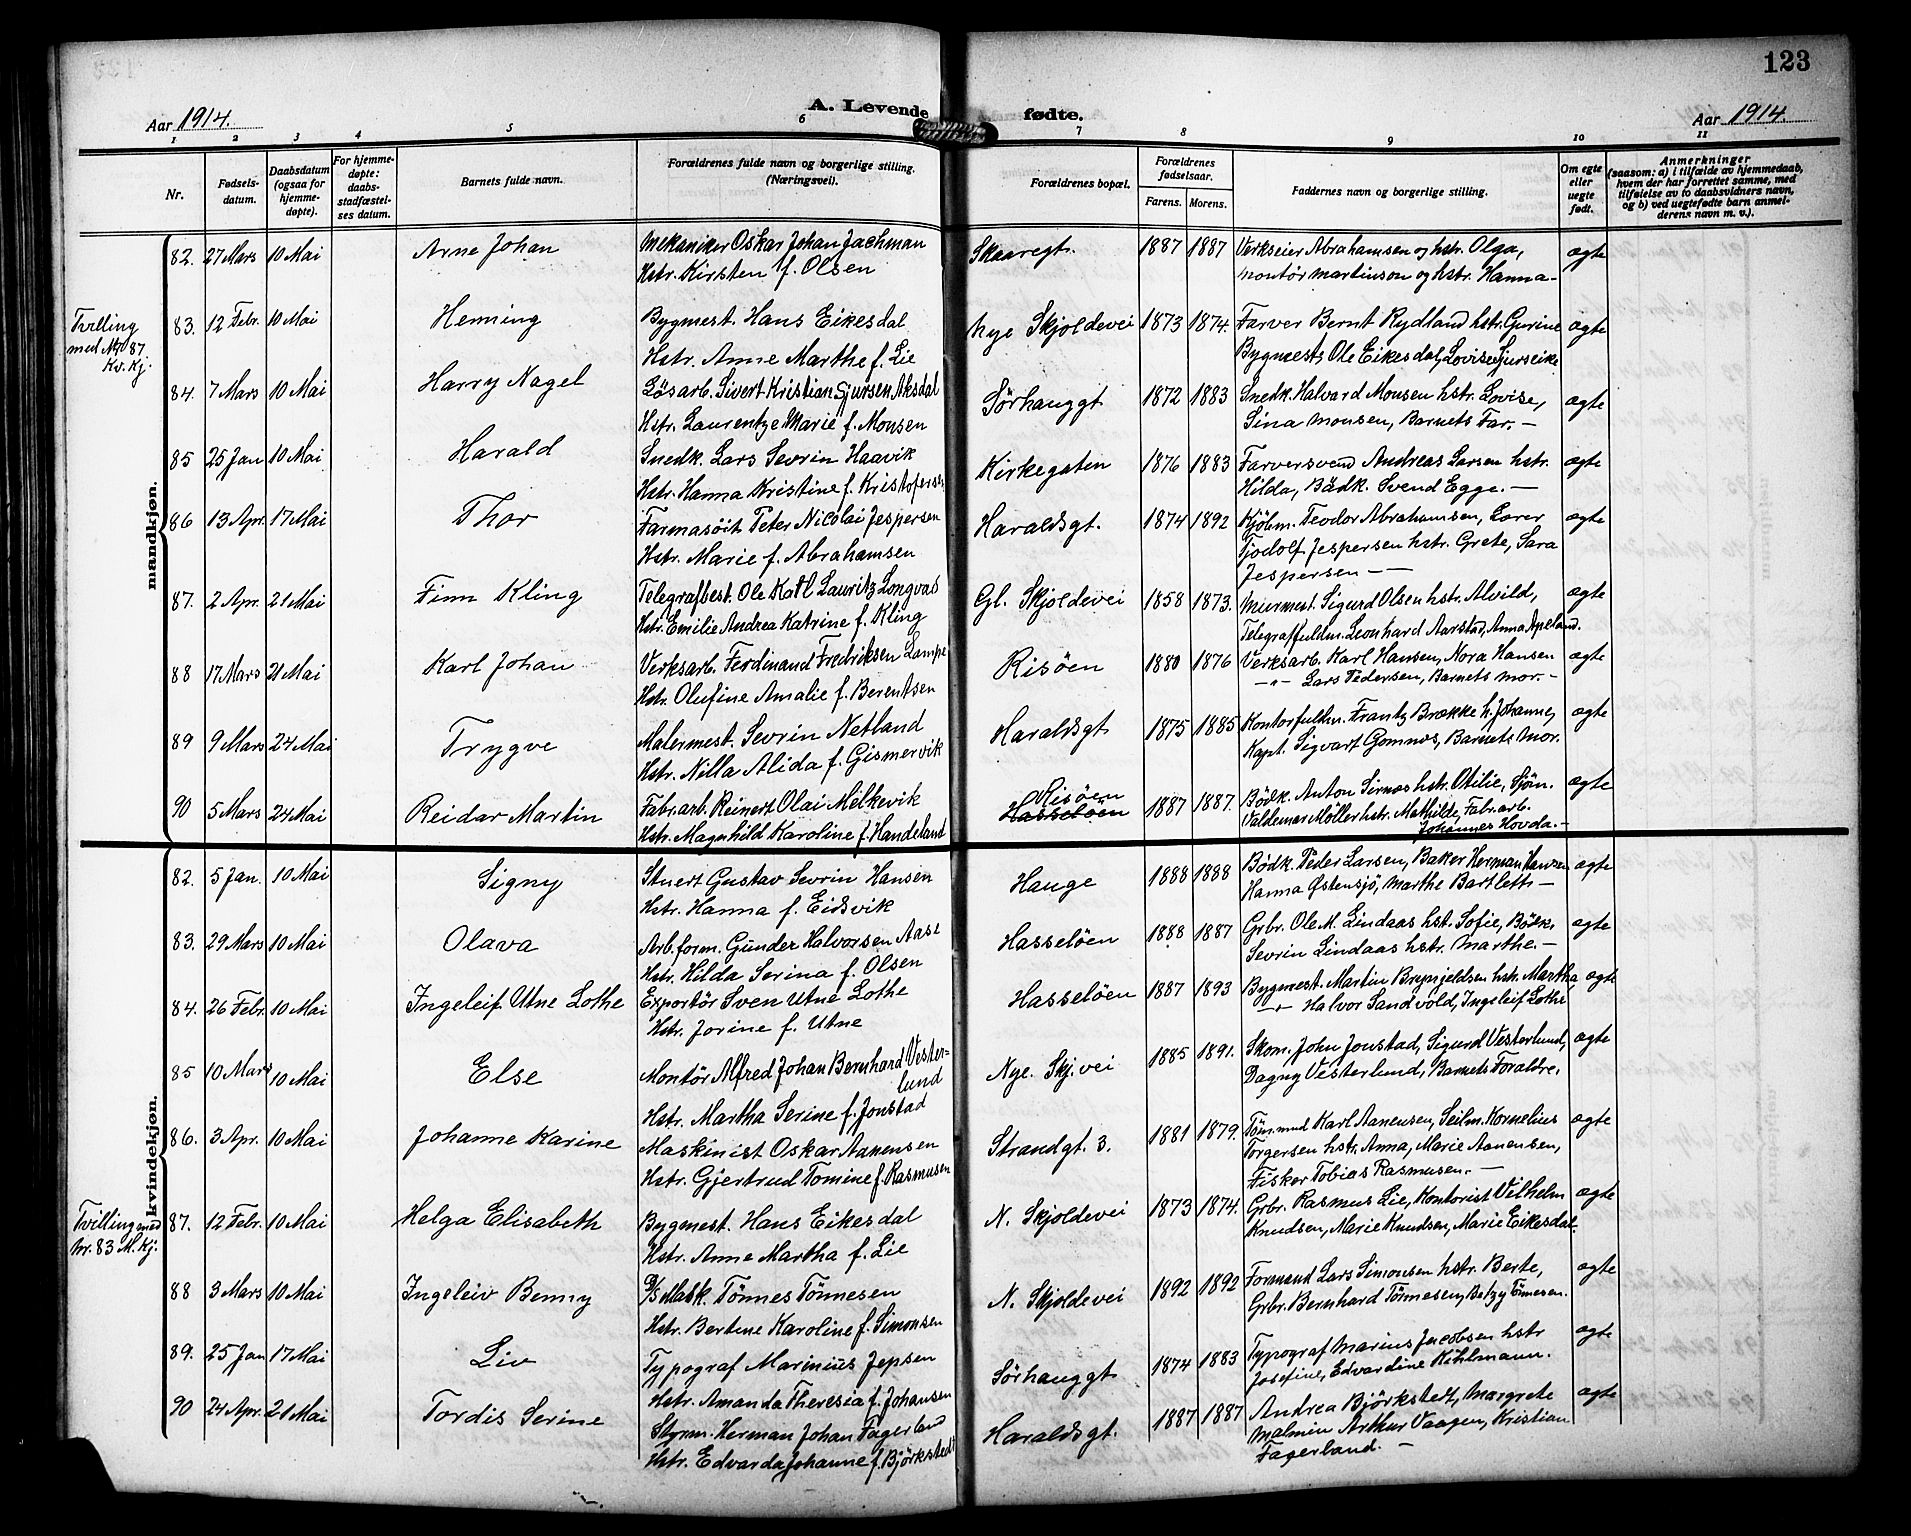 123
A. Levende fødte.
Aar 1914.
Aar 1914.
1 2 3 4 5 6 7 8 9 10 11
Nr.
Fødsels-
datum.
Daabsdatum
(ogsaa for
hjemme-
døpte).
For hjemme-
døpte:
daabs-
stadfæstel-
ses datum.
Barnets fulde navn.
Forældrenes fulde navn og borgerlige stilling.
(Næringsvei).
Forældrenes bopæl.
Forældrenes
fødselsaar.
Farens. Morens.
Faddernes navn og borgerlige stilling.
Om egte
eller
uegte
født.
Anmerkninger
(saasom: a) i tilfælde av hjemmedaab,
hvem der har forrettet samme, med
tilføielse av to daabsvidners navn,
og b) ved uegtefødte barn anmel-
derens navn m. v.).
mandkjøn.
82. 27 Mars 10 Mai Arne Johan Mekaniker Oskar Johan Jachman Skaaregt. 1887 1887 Verkseier Abrahamsen og hstr. Olga, ægte
Hstr. Kirsten f. Olsen montör Martinson og hstr. Hanna-
Tvilling
med Nr 87
Kv. Kj.
83. 12 Febr. 10 Mai Henning Bygmest. Hans Eikesdal Nye Skjoldevei 1873 1874. Farver Bernt Rydland hstr. Gurine ægte
Hstr. Anne Marthe f. Lie Bygmestr Ole Eikesdal, Lovise Sjurseike
84. 7 Mars 10 Mai Harry Nagel Løsarb. Sivert Kristian Sjursen Aksdal Sörhauggt 1872 1883 Snedk. Halvard Monsen hstr. Lovise, ægte
Hstr. Laurentze Marie f. Monsen Sina Monsen, Barnets Far. -
85 25 Jan 10 Mai Harald Snedk. Lars Sevrin Haavik Kirkegaten 1876 1883 Farversvend Andreas Larsen hstr. ægte
Hstr. Hanna Kristine f. Kristofersen Hilda, Bödk. Svend Egge. -
86 13 Apr. 17 Mai Thor Farmasöit Peter Nicolai Jespersen Haraldsgt. 1874 1892 Kjöbm. Teodor Abrahamsen, Lærer ægte
Hstr. Marie f. Abrahamsen Tjodolf Jespersen hstr. Grete, Sara
Jespersen - -
87. 2 Apr. 21 Mai Finn Kling Telegrafbest. Ole Karl Lauritz Longvas Gl. Skjoldevei 1858 1873. Murmest. Sigurd Olsen hstr. Alvild, ægte
Hstr. Emilie Andrea Katrine f. Kling Telegraffuldm. Leonhard Aarstad, Anna Apeland.
88 17 Mars 21 Mai Karl Johan Verksarb. Ferdinand Fredriksen Lampe Risöen 1880 1876 Verksarb. Karl Hansen, Nora Hansen ægte
Hstr. Olufine Amalie f. Berentsen -"- Lars Pedersen, Barnets mor. -
89 9 Mars 24 Mai Trygve Malermest. Sevrin Netland Haraldsgt 1875 1885 Kontorfuldm. Frantz Brække h. Johanne, ægte
Hstr. Nilla Alida f. Gismervik Kapt. Sigvart Gomnæs, Barnets mor.
90 5 Mars 24 Mai Reidar Martin Fabr.arb. Reinert Olai Melkevik Risöen Hasselöen 1887 1887. Bödk. Anton Sirnæs hstr. Otilie, Sjöm. ægte
Hstr. Magnhild Karoline f. Handeland Valdemar Möller hstr. Mathilde, Fabr. arb.
Johannes Hovda. -
kvindekjøn.
82. 5 Jan. 10 Mai Signy Stuert Gustav Sevrin Hansen Hauge 1888 1888 Bödk. Peder Larsen, Baker Herman Hansen ægte
Hstr. Hanna f. Eidsvik Hanna Østensjö, Marthe Bartletts -
83. 29 Mars 10 Mai Olava Arb.form. Gunder Halvorsen Aase Hasselöen 1888 1887 Grbr. Ole M. Lindaas hst. Sofie, Bödk. ægte
Hstr. Hilda Serina f. Olsen Sevrin Lindaas hstr. Marthe. -
84. 26 Febr. 10 Mai Ingeleif Utne Lothe Exportör Sven Utne Lothe Hasselöen 1887 1893 Bygmest. Martin Brynjeldsen hstr. Martha ægte
Hstr. Jorine f. Utne -"- Halvor Sandvold, Ingeleif Lothe
85 10 Mars 10 Mai Else Montör Alfred Johan Bernhard Vester-
lund Nye. Skj.vei 1885 1891. Skom. John Jonstad, Sigurd Vesterlund, ægte
Hstr. Martha Serine f. Jonstad Dagny Vesterlund, Barnets Foraldre.
86. 3 Apr. 10 Mai Johanne Karine Maskinist Oskar Aanensen Strandgt. 3. 1881 1879. Töm.md Karl Aanensen, Seilm. Kornelius ægte
Hstr. Gjertrud Tomine f. Rasmusen Torgersen hstr. Anna, Marie Aanensen,
Fisker Tobias Rasmusen. -
Tvilling med
Nr. 83 M. Kj.
87. 12 Febr. 10 Mai Helga Elisabeth Bygmest. Hans Eikesdal N. Skjoldevei 1873 1874. Grbr. Rasmus Lie, Kontorist Vilhelm ægte
Hstr. Anne Martha f. Lie Knudsen, Marie Knudsen, Marie Eikesdal.
88 3 Mars 10 Mai Ingeleiv Benny D/S Mask. Tönnes Tönnesen N. Skjoldevei 1892 1892 Formand Lars Simonsen hstr. Berte, ægte
Hstr. Bertine Karoline f. Simonsen Grbr. Bernhard Tönnesen, Betzy Tönnesen.
89. 25 Jan 17 Mai Liv Typograf Marinius Jepsen Sörhauggt 1874 1883 Typograf Marius Jacobsen hstr ægte
Hstr. Amanda Theresia f. Johansen Josefine, Edvardine Kihlmann.
90 24 Apr. 21 Mai Tordis Serine Styrm. Herman Johan Fagerland Haraldsgt. 1887 1887 Andrea Björkstedt, Margrete ægte
Hstr. Edvarda Johanne f. Björkstedt Malmin Arthur Vaagen, Kristian
Fagerland. -